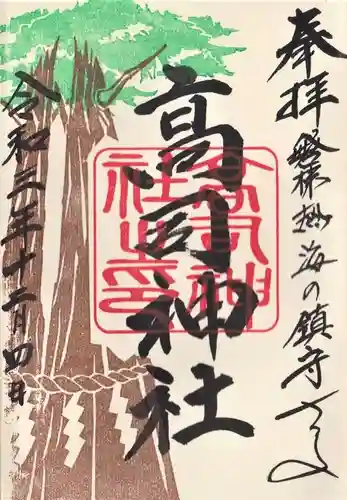 奉拝
磐梯熱海の鎮守
高司神社
高司神社之印
令和三年十二月四日